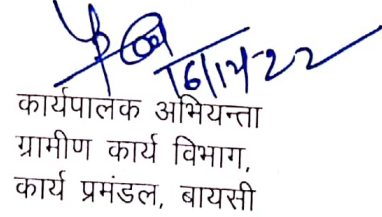 कार्यपालक अभियन्ता
ग्रामीण कार्य विभाग,
कार्य प्रमंडल, बायसी